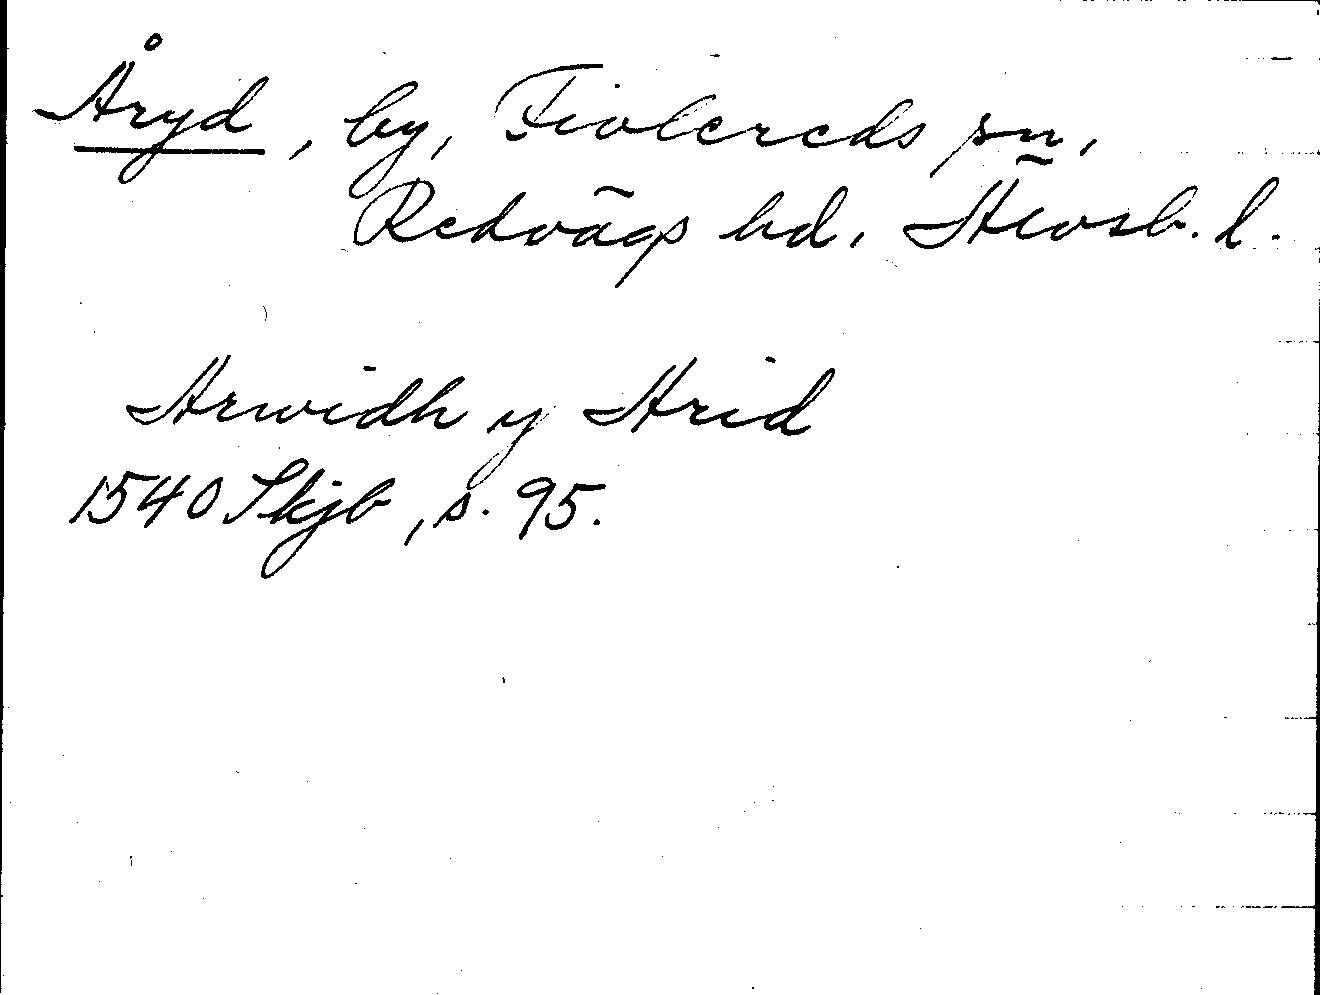 Åryd, by, Fivlereds sn,
Redvägs hd, Älvsb. l.
Arwidh y Arid
1540 Skjb, s. 95.